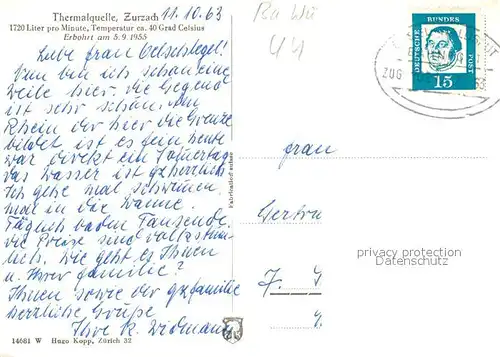 Thermalquelle, Zurzach 11.10.63
1720 Liter pro Minute, Temperatur ca. 40 Grad Celsius
Erbohrt am 5.9.1955
Liebe Frau Oelschlegel!
Nun bin ich schon eine
Weile hier. Die Gegend
ist sehr schön. Am
Rhein der hier die Grenze
bildet ist es fein heute
war direkt ein Sommertag
das Wasser ist herrlich
Ich gehe mal schwimmen
mal in die Wanne.
Täglich baden Tausende.
Die Preise sind volkstüm-
lich. Wie geht es Ihnen
u. Ihrer Familie?
Ihnen sowie der Familie
herzliche Grüße
Ihre R. Widmann
14681 W Hugo Kopp, Zürich 32
Ba Wü
44
DEUTSCHE BUNDES POST
15
ZUG
63
Frau
Gertru
privacy protection
Datenschutz
7.